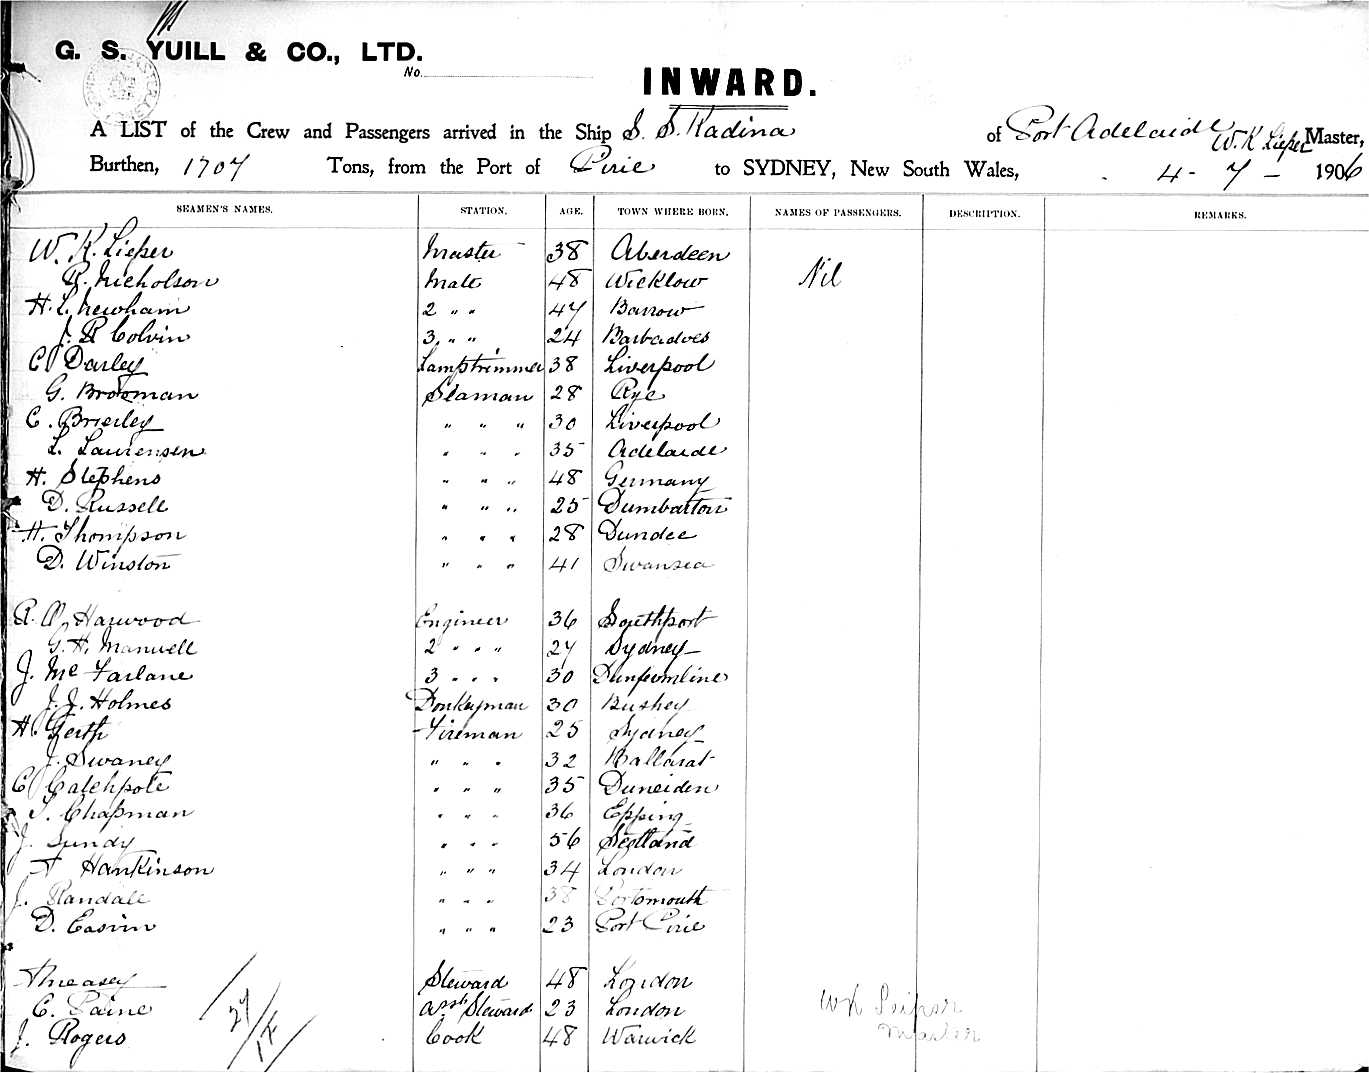 G. S. YUILL & CO., LTD.
No.
INWARD.
A LIST of the Crew and Passengers arrived in the Ship S. S. Kadina of Port Adelaide W. K Lieper Master,
Burthen, 1707 Tons, from the Port of Pirie to SYDNEY, New South Wales, 4 - 7 - 1906
SEAMEN'S NAMES. STATION. AGE. TOWN WHERE BORN. NAMES OF PASSENGERS. DESCRIPTION. REMARKS.
W. K. Lieper Master 38 Aberdeen
R. Nicholson Mate 48 Wicklow Nil
H. L. Newham 2 " " 47 Barrow
J. R Colvin 3. " " 24 Barbadoes
C Darley Lamptrimmer 38 Liverpool
G. Brooman Seaman 28 Rye
C. Brierley " " " 30 Liverpool
L. Laurensen " " " 35 Adelaide
H. Stephens " " " 48 Germany
D. Russell " " " 25 Dumbarton
H. Thompson " " " 28 Dundee
D. Winston " " " 41 Swansea
A. Harwood Engineer 36 Southport
G. H. Manwell 2 " " " 27 Sydney
J. Mc Farlane 3 " " " 30 Dunfermline
J. J. Holmes Donkeyman 30 Bushey
H. Gerth Fireman 25 Sydney
J. Swaney " " " 32 Ballarat
C Catchpole " " " 35 Duneiden
T. Chapman " " " 36 Epping
J. Lundy " " " 56 Scotland
Hankinson " " " 34 London
J. Randall " " " 38 Portsmouth
D. Easvin " " " 23 Port Pirie
Measey Steward 48 London
C. Paine Asst Steward 23 London
J. Rogers Cook 48 Warwick
27/14/
W K Leiper
Master